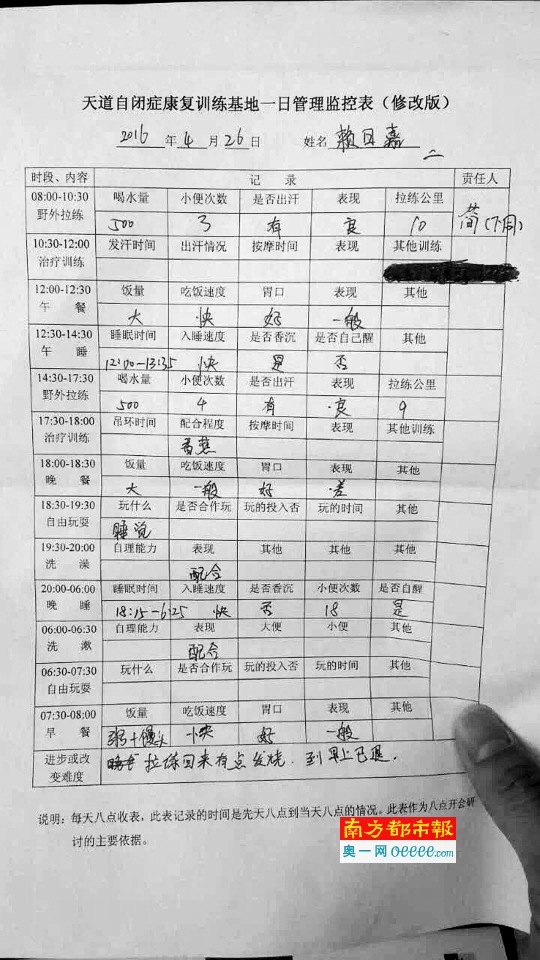 天道自闭症康复训练基地一日管理监控表（修改版）
2016 年 4 月 26 日 姓名 赖日嘉
二
时段、内容 记 录 责任人
08:00-10:30 喝水量 小便次数 是否出汗 表现 拉练公里
野外拉练 500 3 有 良 10
10:30-12:00 发汗时间 出汗情况 按摩时间 表现 其他训练
治疗训练
12:00-12:30 饭量 吃饭速度 胃口 表现 其他
午 餐 大 快 好 一般
12:30-14:30 睡眠时间 入睡速度 是否香沉 是否自己醒 其他
午 睡 12:00-13:35 快 是 否
14:30-17:30 喝水量 小便次数 是否出汗 表现 拉练公里
野外拉练 500 4 有 良 9
17:30-18:00 吊环时间 配合程度 按摩时间 表现 其他训练
治疗训练 香蕉
18:00-18:30 饭量 吃饭速度 胃口 表现 其他
晚 餐 大 一般 好 差
18:30-19:30 玩什么 是否合作玩 玩的投入否 玩的时间 其他
自由玩耍 睡觉
19:30-20:00 自理能力 表现 其他 其他 其他
洗 澡 配合
20:00-06:00 睡眠时间 入睡速度 是否香沉 小便次数 是否自醒
晚 睡 18:15-6:25 快 否 18 是
06:00-06:30 自理能力 表现 大便 小便 其他
洗 漱 配合
06:30-07:30 玩什么 是否合作玩 玩的投入否 玩的时间 其他
自由玩耍
07:30-08:00 饭量 吃饭速度 胃口 表现 其他
早 餐 粥+馒头 快 好 一般
进步或改
变难度 拉练回来有点发烧，到早上已退。
说明：每天八点收表，此表记录的时间是先天八点到当天八点的情况。此表作为八点开会研
讨的主要依据。
南方都市報
奥一网 oeeee.com